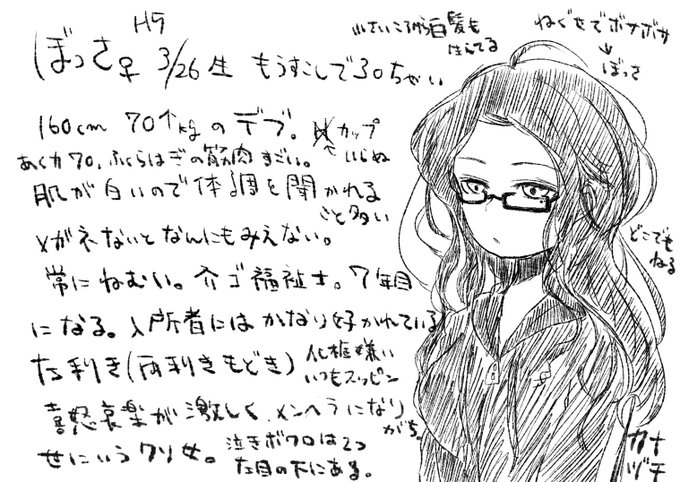 H9
ぼっさ♀ 3/26生 もうすこしで30ちゃい
小さいころから白髪も
生えてる
ねぐせでボサボサ
↓
ぼっさ
160cm 70↑kgのデブ。Hカップ
いらぬ
あく力70、ふくらはぎの筋肉すごい。
肌が白いので体調を聞かれる
こと多い
メガネないとなんにもみえない。
常にねむい。介ゴ福祉士。7年目
になる。入所者にはかなり好かれている
左利き(両利きもどき)
化粧嫌い
いつもスッピン
喜怒哀楽が激しくメンヘラになり
がち。
せにいうクソ女。
泣きボクロは2つ
左目の下にある。
どこでも
ねる
カナ
ヅチ